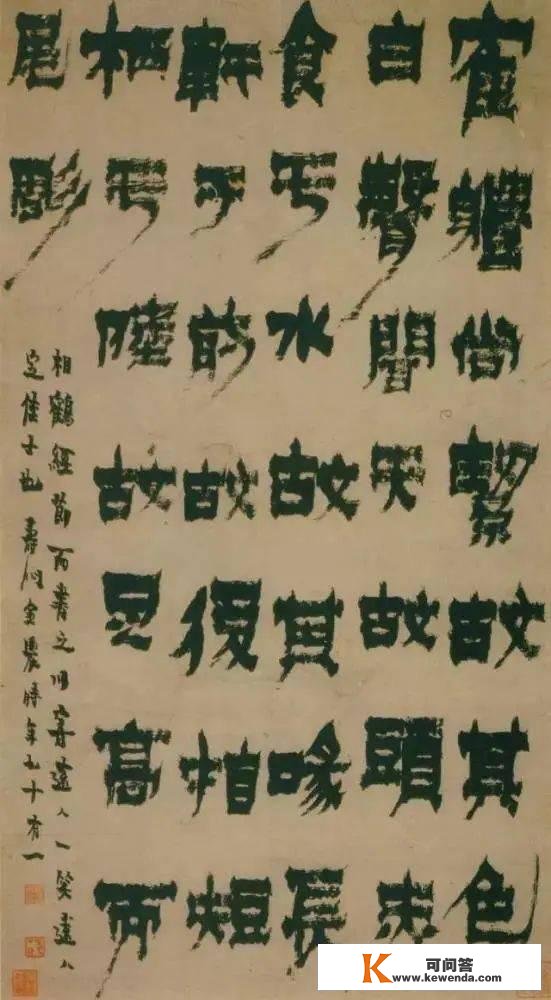 隺軆尚絜故其色
白聲聞天故頭朱
食于水故其喙長
軒于前故後指短
栖于陸故足高而
尾彫
相鶴經節而書之用寄遠人一笑遠人
定佳士也壽门金農時年七十有一
K 可问答
www.kewenda.com